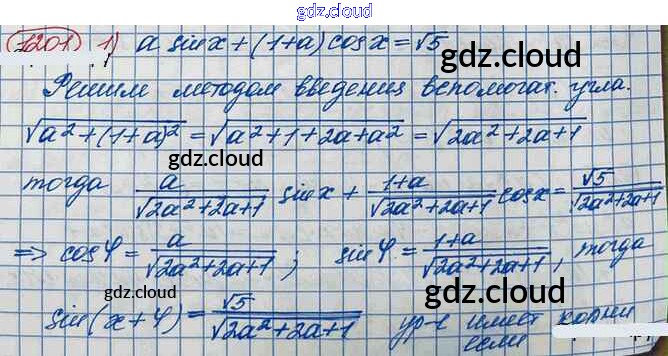 gdz.cloud
1201 1) a sinx + (1+a) cosx = √5
gdz.cloud
Решим методом введения вспомогат. угла.
√a²+(1+a)² = √a²+1+2a+a² = √2a²+2a+1
gdz.cloud
тогда a/√2a²+2a+1 sinx + 1+a/√2a²+2a+1 cosx = √5/√2a²+2a+1
gdz.cloud
=> cosφ = a/√2a²+2a+1 ; sinφ = 1+a/√2a²+2a+1 , тогда
gdz.cloud gdz.cloud
sin(x+φ) = √5/√2a²+2a+1 ур-е имеет корни
если